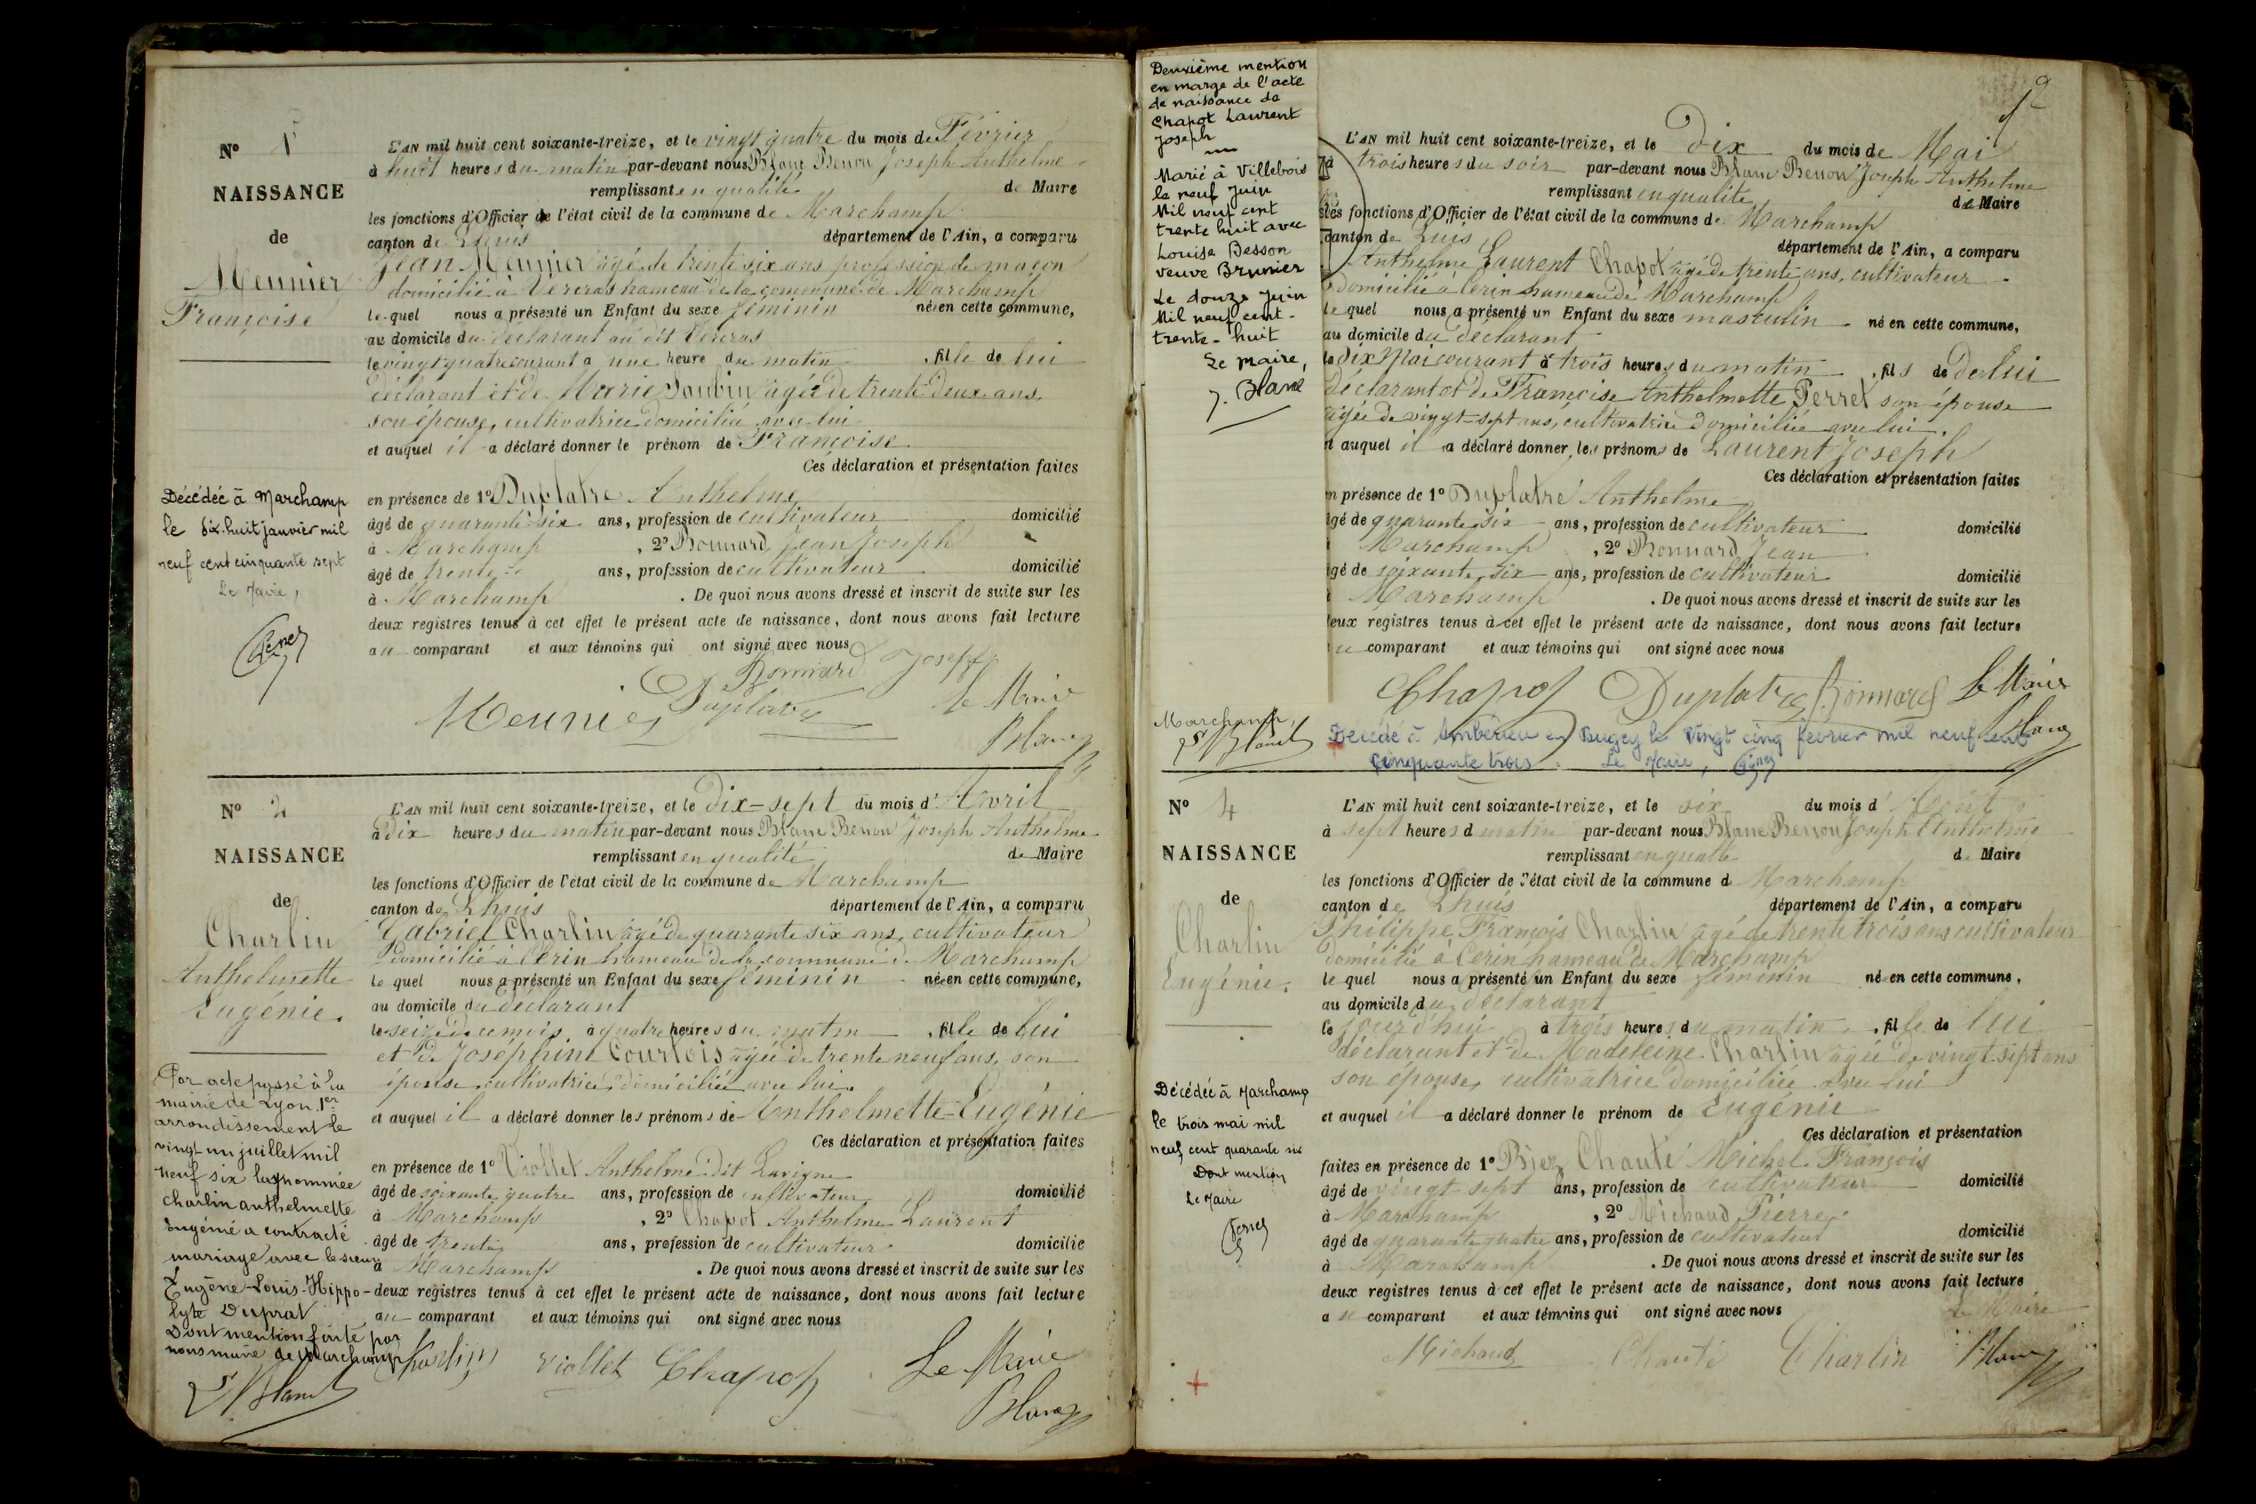 N° 1
NAISSANCE
de
Meunier
Françoise
Décédée à Marchamp
le dix-huit janvier mil
neuf cent cinquante sept
Le Maire,
L'AN mil huit cent soixante-treize, et le vingt quatre du mois de Février
à huit heures du matin par-devant nous Blanc Benon Joseph Anthelme
remplissant en qualité de Maire
les fonctions d'Officier de l'état civil de la commune de Marchamp
canton de Lhuis département de l'Ain, a comparu
Jean Meunier âgé de trente six ans profession de maçon
domicilié à Cercras hameau de la commune de Marchamp
lequel nous a présenté un Enfant du sexe féminin née en cette commune,
au domicile du déclarant au dit Cercras
le vingt quatre courant à une heure du matin, fille de lui
déclarant et de Marie âgée de trente deux ans,
son épouse, cultivatrice domiciliée avec lui
et auquel il a déclaré donner le prénom de Françoise
Ces déclaration et présentation faites
en présence de 1° Duplatre Anthelme
âgé de quarante six ans, profession de cultivateur domicilié
à Marchamp, 2° Bonnard Jean Joseph
âgé de trente ans, profession de cultivateur domicilié
à Marchamp. De quoi nous avons dressé et inscrit de suite sur les
deux registres tenus à cet effet le présent acte de naissance, dont nous avons fait lecture
au comparant et aux témoins qui ont signé avec nous
Bonnard Joseph
Meunier Duplatre le Maire
Blanc
N° 2
NAISSANCE
de
Charlin
Anthelmette
Eugénie.
Par acte passé à la
mairie de Lyon 1er
arrondissement le
vingt-un juillet mil
neuf six la nommée
Charlin anthelmette
Eugénie a contracté
mariage avec le sieur
Eugène-Louis-Hippo-
lyte Duprat
Dont mention faite par
nous maire de Marchamp
Blanc
L'AN mil huit cent soixante-treize, et le dix-sept du mois d'Avril
à dix heures du matin par-devant nous Blanc Benon Joseph Anthelme
remplissant en qualité de Maire
les fonctions d'Officier de l'état civil de la commune de Marchamp
canton de Lhuis département de l'Ain, a comparu
Gabriel Charlin âgé de quarante six ans, cultivateur
domicilié à Cerin hameau de la commune de Marchamp
lequel nous a présenté un Enfant du sexe féminin née en cette commune,
au domicile du déclarant
le seize de ce mois à quatre heures du matin, fille de lui
et de Joséphine Courtois âgée de trente neuf ans, son
épouse cultivatrice domiciliée avec lui.
et auquel il a déclaré donner les prénoms de Anthelmette-Eugénie
Ces déclaration et présentation faites
en présence de 1° Viollet Anthelme dit Lavigne
âgé de soixante quatre ans, profession de cultivateur domicilié
à Marchamp, 2° Chapot Anthelme Laurent
âgé de trente ans, profession de cultivateur domicilié
à Marchamp. De quoi nous avons dressé et inscrit de suite sur les
deux registres tenus à cet effet le présent acte de naissance, dont nous avons fait lecture
au comparant et aux témoins qui ont signé avec nous
Charlin Viollet Chapot Le Maire
Blanc
Deuxième mention
en marge de l'acte
de naissance de
Chapot Laurent
Joseph
Marié à Villebois
le neuf Juin
Mil neuf cent
trente huit avec
Louise Besson
veuve Brunier
Le douze Juin
Mil neuf cent-
trente-huit
Le Maire,
J. Blanc
Marchamp,
Blanc
2
L'AN mil huit cent soixante-treize, et le Dix du mois de Mai
à trois heures du soir par-devant nous Blanc Benon Joseph Anthelme
remplissant en qualité de Maire
les fonctions d'Officier de l'état civil de la commune de Marchamp
canton de Luis département de l'Ain, a comparu
Anthelme Laurent Chapot âgé de trente ans, cultivateur
domicilié à Cerin hameau de Marchamp
lequel nous a présenté un Enfant du sexe masculin né en cette commune,
au domicile du déclarant
le dix Mai courant à trois heures du matin, fils de De lui
déclarant et de Françoise Anthelmette Perret son épouse
âgée de vingt-sept ans, cultivatrice domiciliée avec lui.
et auquel il a déclaré donner les prénoms de Laurent Joseph
Ces déclaration et présentation faites
en présence de 1° Duplatre Anthelme
âgé de quarante six ans, profession de cultivateur domicilié
Marchamp, 2° Bonnard Jean
âgé de soixante six ans, profession de cultivateur domicilié
Marchamp. De quoi nous avons dressé et inscrit de suite sur les
deux registres tenus à cet effet le présent acte de naissance, dont nous avons fait lecture
au comparant et aux témoins qui ont signé avec nous
Chapot Duplatre Bonnard Le Maire
Blanc
Décédé à Ambérieu en Bugey le vingt cinq février mil neuf cent
cinquante trois. Le Maire,
N° 4
NAISSANCE
de
Charlin
Eugénie.
Décédée à Marchamp
le trois mai mil
neuf cent quarante six
Dont mention
Le Maire
L'AN mil huit cent soixante-treize, et le six du mois d'Août
à sept heures d matin par-devant nous Blanc Benon Joseph Anthelme
remplissant en qualité de Maire
les fonctions d'Officier de l'état civil de la commune d Marchamp
canton de Lhuis département de l'Ain, a comparu
Philippe François Charlin âgé de trente trois ans cultivateur
domicilié à Cerin hameau de Marchamp
lequel nous a présenté un Enfant du sexe féminin née en cette commune,
au domicile du déclarant
le jourd'hui à trois heures du matin, fille de lui
déclarant et de Madeleine Charlin âgée de vingt sept ans
son épouse, cultivatrice domiciliée avec lui
et auquel il a déclaré donner le prénom de Eugénie
Ces déclaration et présentation
faites en présence de 1° Chanté Michel François
âgé de vingt sept ans, profession de cultivateur domicilié
à Marchamp, 2° Michaud Pierre
âgé de quarante quatre ans, profession de cultivateur domicilié
à Marchamp. De quoi nous avons dressé et inscrit de suite sur les
deux registres tenus à cet effet le présent acte de naissance, dont nous avons fait lecture
a comparant et aux témoins qui ont signé avec nous
Le Maire
Michaud Chanté Charlin Blanc